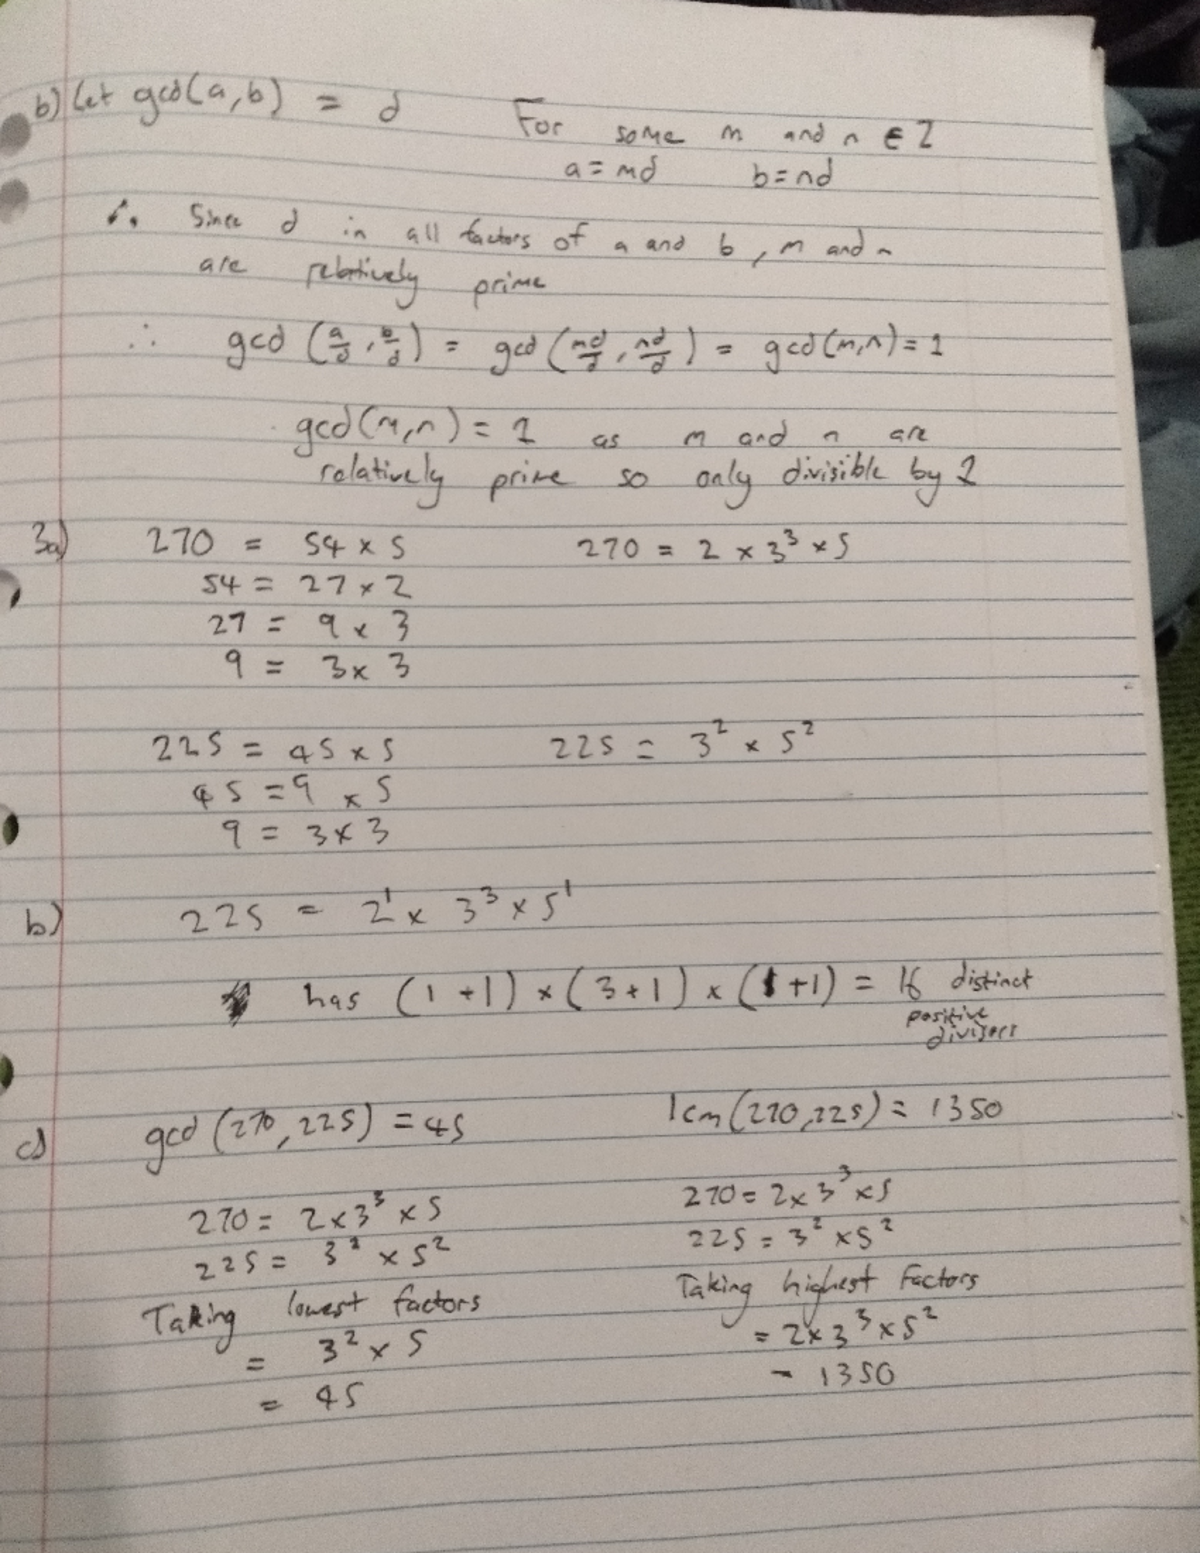 b) Let gcd(a,b) = d For some m and n ∈ Z
a = md b = nd
∴ Since d in all factors of a and b, m and n
are relatively prime
∴ gcd (a/d, b/d) = gcd (md/d, nd/d) = gcd(m,n) = 1
gcd(m,n) = 1 as m and n are
relatively prime so only divisible by 1
3a) 270 = 54 × 5 270 = 2 × 3³ × 5
54 = 27 × 2
27 = 9 × 3
9 = 3 × 3
225 = 45 × 5 225 = 3² × 5²
45 = 9 × 5
9 = 3 × 3
b) 225 = 2¹ × 3³ × 5¹
has (1+1) × (3+1) × (1+1) = 16 distinct
positive
divisors
c) gcd (270, 225) = 45 lcm (270, 225) = 1350
270 = 2 × 3³ × 5 270 = 2 × 3³ × 5
225 = 3² × 5² 225 = 3² × 5²
Taking lowest factors Taking highest factors
= 3² × 5 = 2 × 3³ × 5²
= 45 = 1350